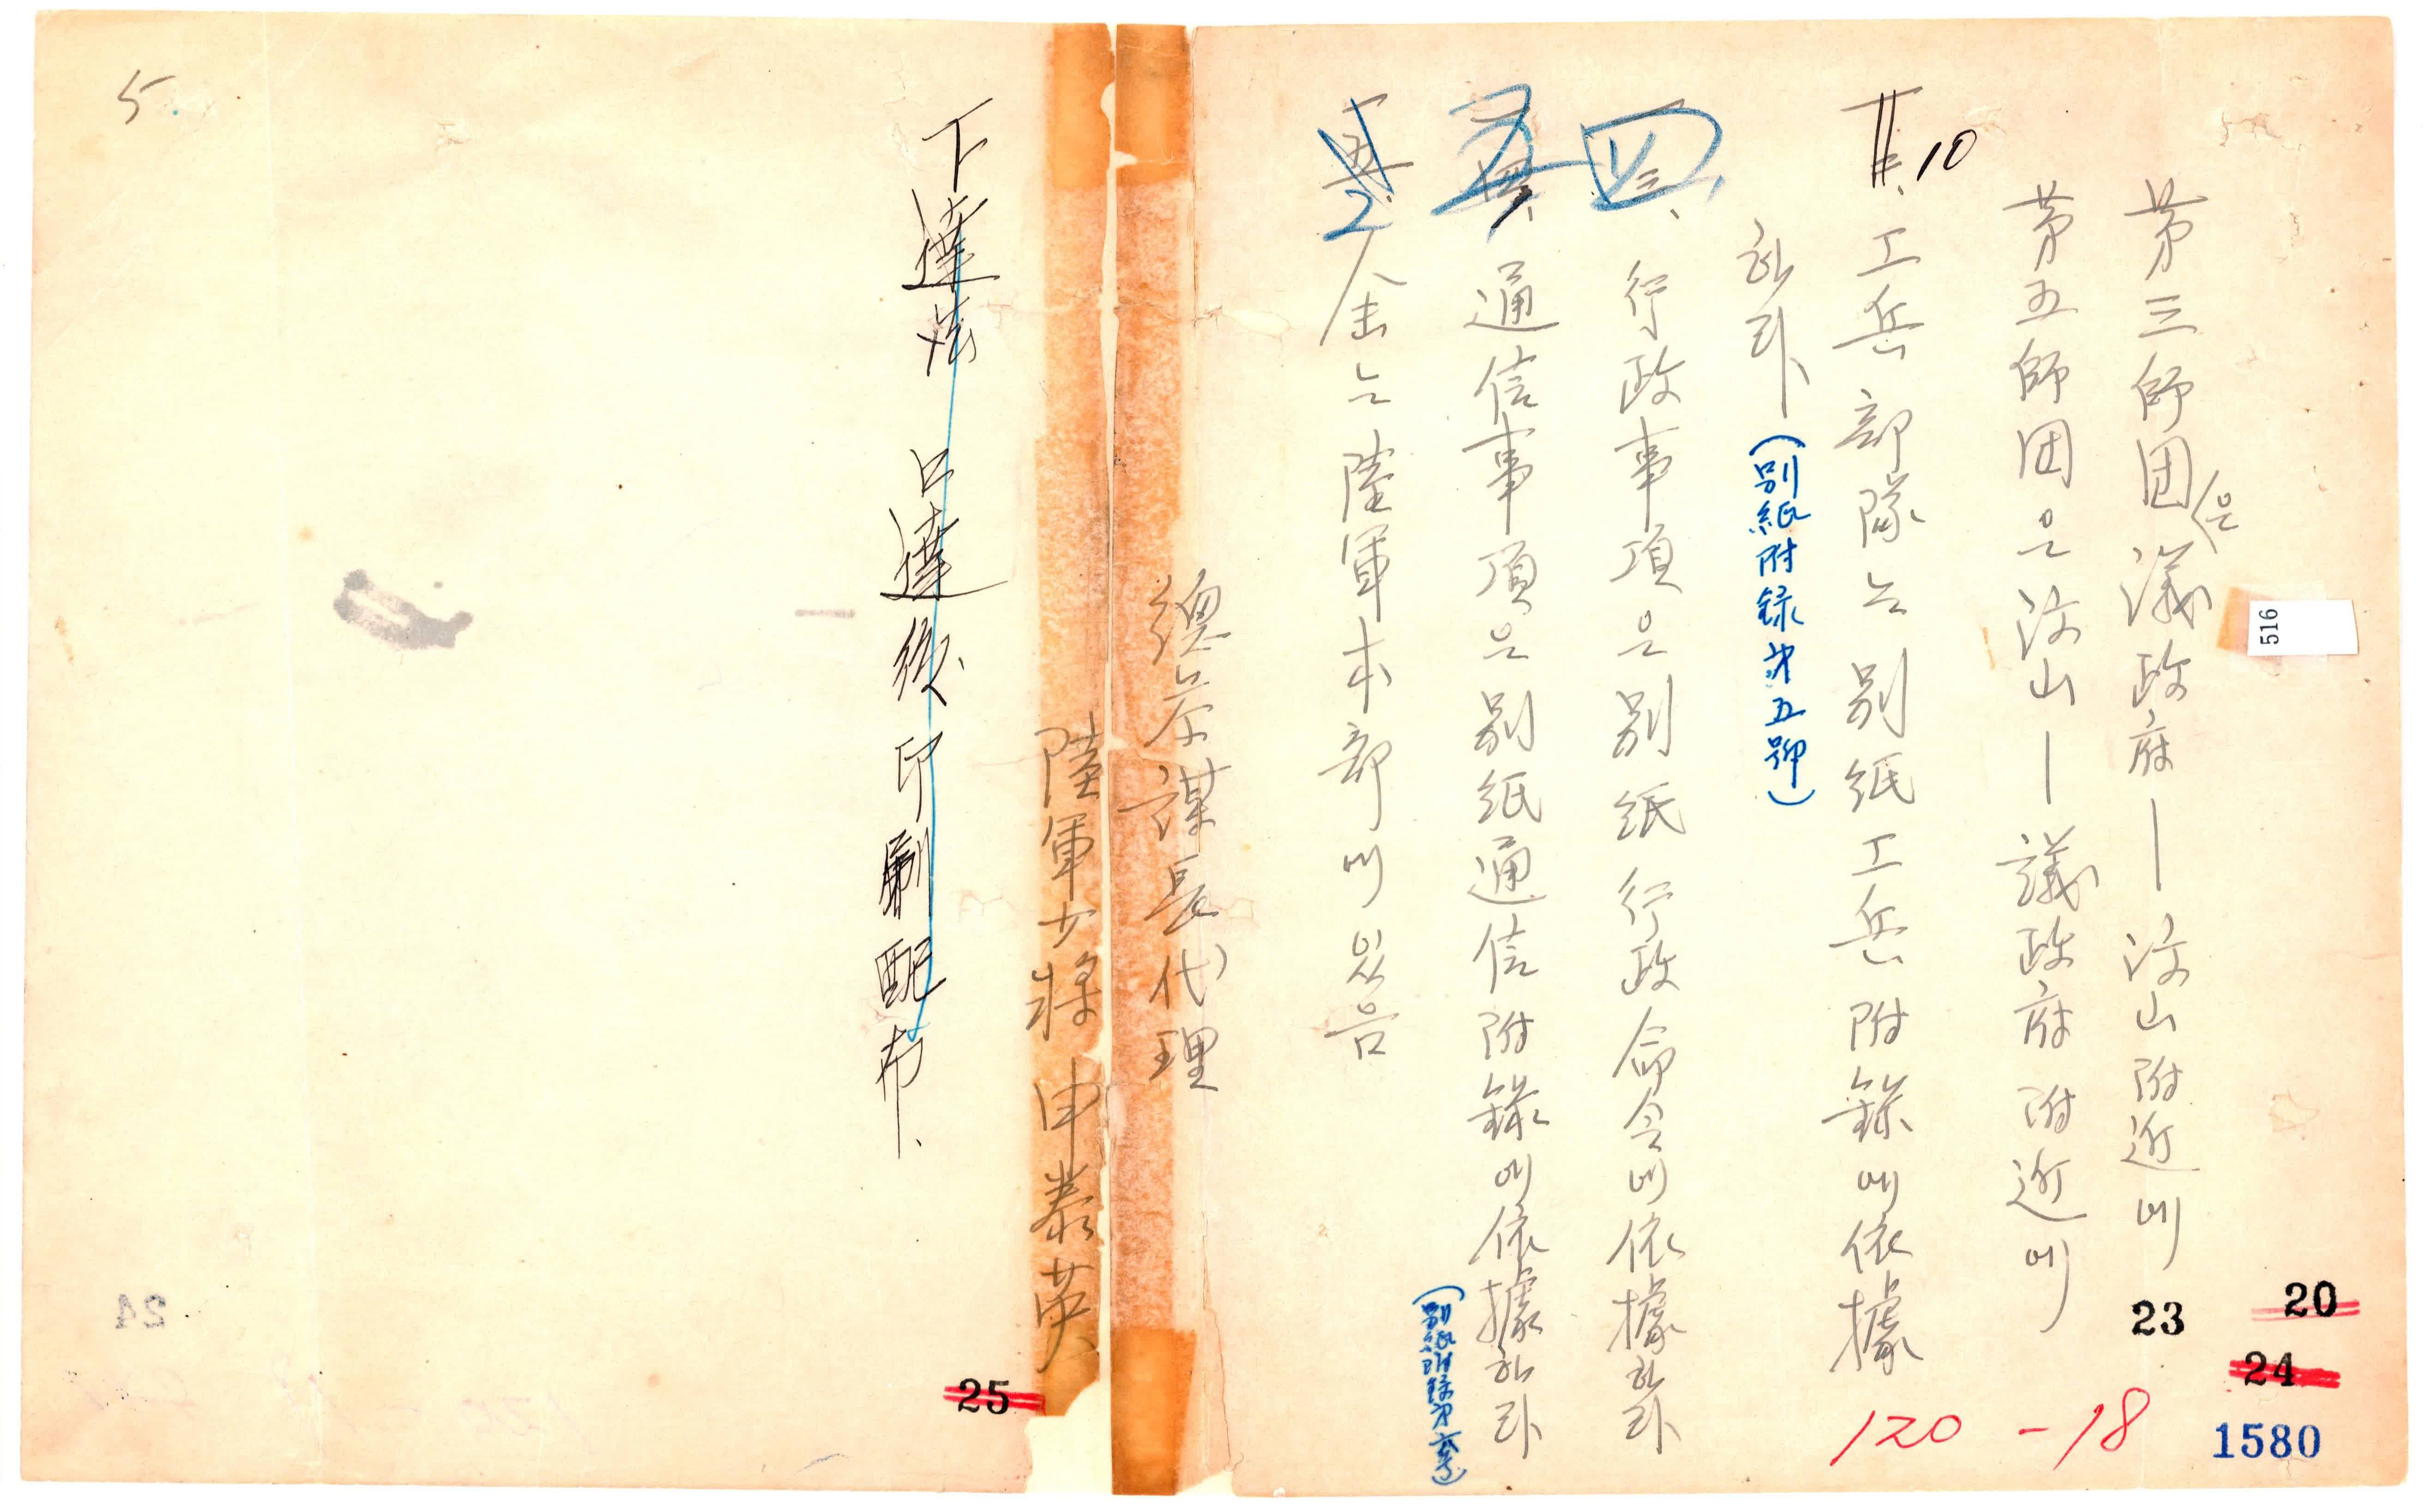 第三師団은 議政府ー汶山附近에
第五師団은 汶山ー議政府附近에
10 工兵部隊는 別紙工兵附錄에 依據
하라 (別紙附録第五号)
四、行政事項은 別紙行政命令에 依據하라
五、通信事項은 別紙通信附錄에 依據하라
(別紙附録第六号)
2 余는 陸軍本部에 있음
總參謀長代理
陸軍少將 申泰英
下達法 口達後印刷配布、
5
516
20
23
24
25
120-18
1580